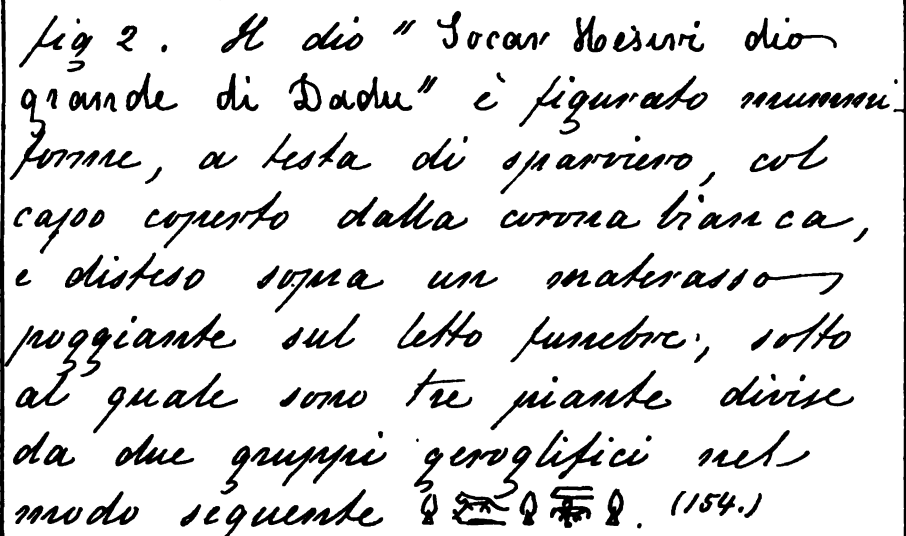 fig 2. Il dio "Socar Hesiri dio
grande di Dadu" è figurato mummi-
forme, a testa di sparviero, col
capo coperto dalla corona bianca,
e disteso sopra un materasso
poggiante sul letto funebre, sotto
al quale sono tre piante divise
da due gruppi geroglifici nel
modo seguente . (154.)